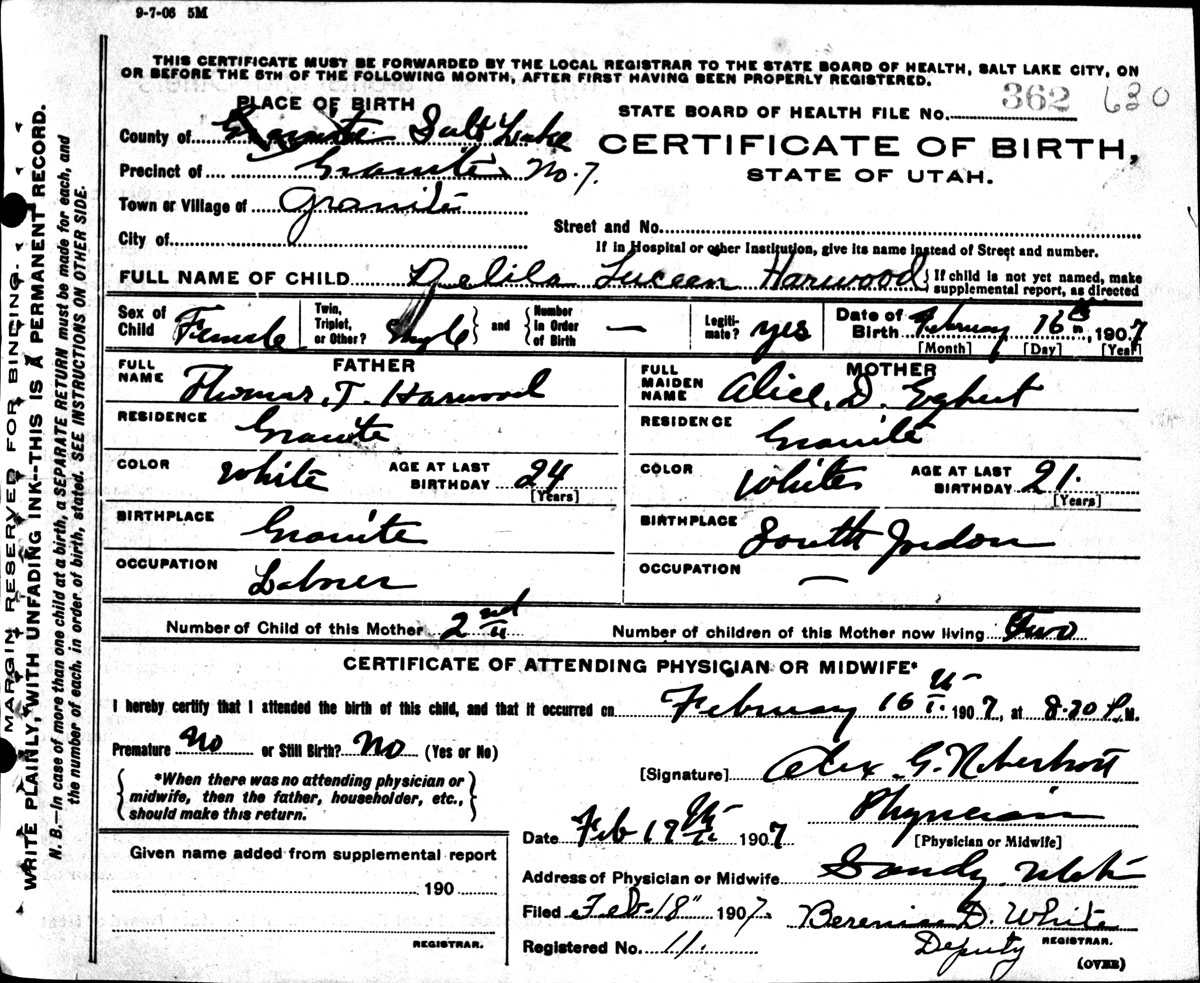 9-7-06 5M
THIS CERTIFICATE MUST BE FORWARDED BY THE LOCAL REGISTRAR TO THE STATE BOARD OF HEALTH, SALT LAKE CITY, ON
OR BEFORE THE 5TH OF THE FOLLOWING MONTH, AFTER FIRST HAVING BEEN PROPERLY REGISTERED.
PLACE OF BIRTH
STATE BOARD OF HEALTH FILE No. 362 630
County of Granite Salt Lake
CERTIFICATE OF BIRTH,
STATE OF UTAH.
Precinct of Granite No. 7.
Town or Village of Granite
Street and No.
City of
If in Hospital or other Institution, give its name instead of Street and number.
FULL NAME OF CHILD Delila Luceen Harwood } If child is not yet named, make
supplemental report, as directed
Sex of Child Female
Twin, Triplet, or Other? } and { Number in Order of Birth —
Legiti-mate? yes
Date of Birth February 16th, 1907
[Month] [Day] [Year]
FATHER
FULL NAME Thomas. T. Harwood
RESIDENCE Granite
COLOR White AGE AT LAST BIRTHDAY 24
[Years]
BIRTHPLACE Granite
OCCUPATION Laborer
MOTHER
FULL MAIDEN NAME Alice. D. Egbert
RESIDENCE Granite
COLOR White AGE AT LAST BIRTHDAY 21.
[Years]
BIRTHPLACE South Jordon
OCCUPATION —
Number of Child of this Mother 2nd Number of children of this Mother now living Two
CERTIFICATE OF ATTENDING PHYSICIAN OR MIDWIFE*
I hereby certify that I attended the birth of this child, and that it occurred on February 16th 1907, at 8.30 P.M.
Premature No or Still Birth? No (Yes or No)
{ *When there was no attending physician or
midwife, then the father, householder, etc.,
should make this return. }
[Signature] Alex. G.
Date Feb 17th 1907 Physician
[Physician or Midwife]
Address of Physician or Midwife Sandy. Utah
Given name added from supplemental report
190
REGISTRAR.
Filed Feb-18" 1907. Berenice D. White
Registered No. 11. Deputy REGISTRAR.
(OVER)
MARGIN RESERVED FOR BINDING.
WRITE PLAINLY, WITH UNFADING INK--THIS IS A PERMANENT RECORD.
N. B.—In case of more than one child at a birth, a SEPARATE RETURN must be made for each, and
the number of each, in order of birth, stated. SEE INSTRUCTIONS ON OTHER SIDE.